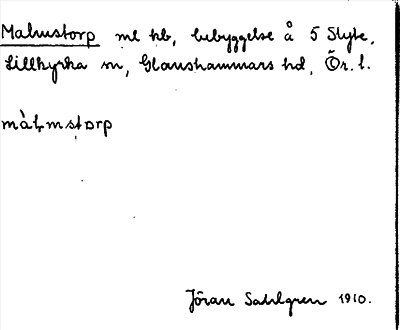 Malmstorp ml kb, bebyggelse å 5 Slyte,
Lillkyrka sn, Glanshammars hd, Ör. l.
màɬmstɒrp
Jöran Sahlgren 1910.